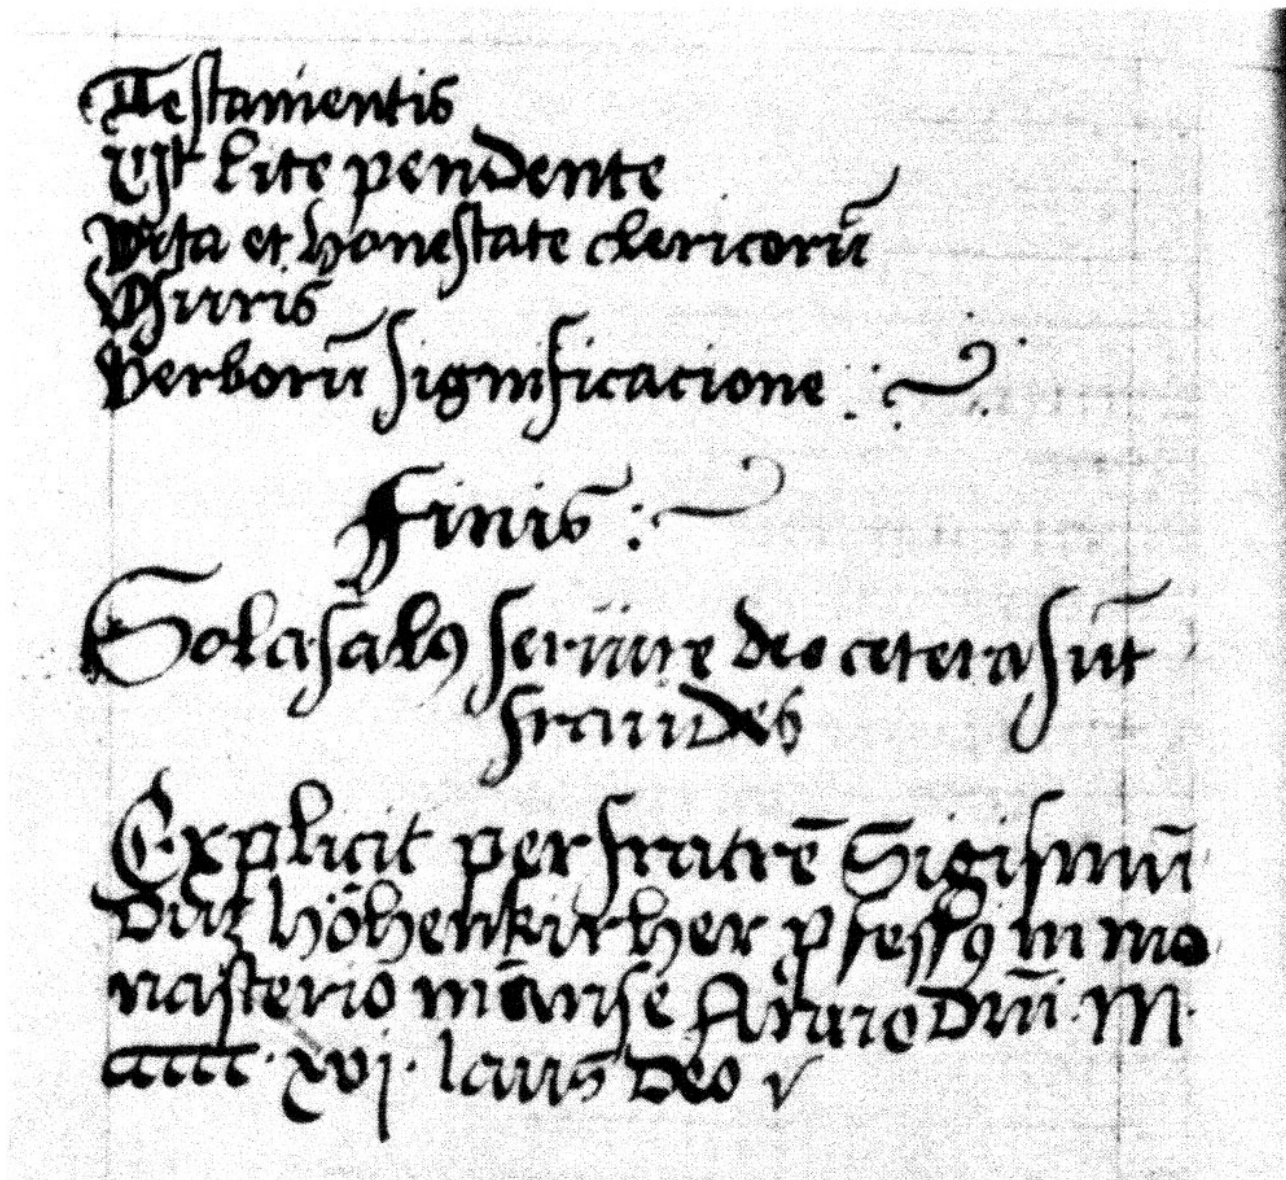 Testamentis
Vt lite pendente
Vita et honestate clericorū
Vsuris
Verborū significacione :~
Finis :~
Sola salꝰ seruire deo cetera sūt
fraudes
Explicit per fratrē Sigismū
dūz höhenkircher ꝓfessꝰ in mo
nasterio Anno Dn̄i · M ·
cccc · xvj · laus deo